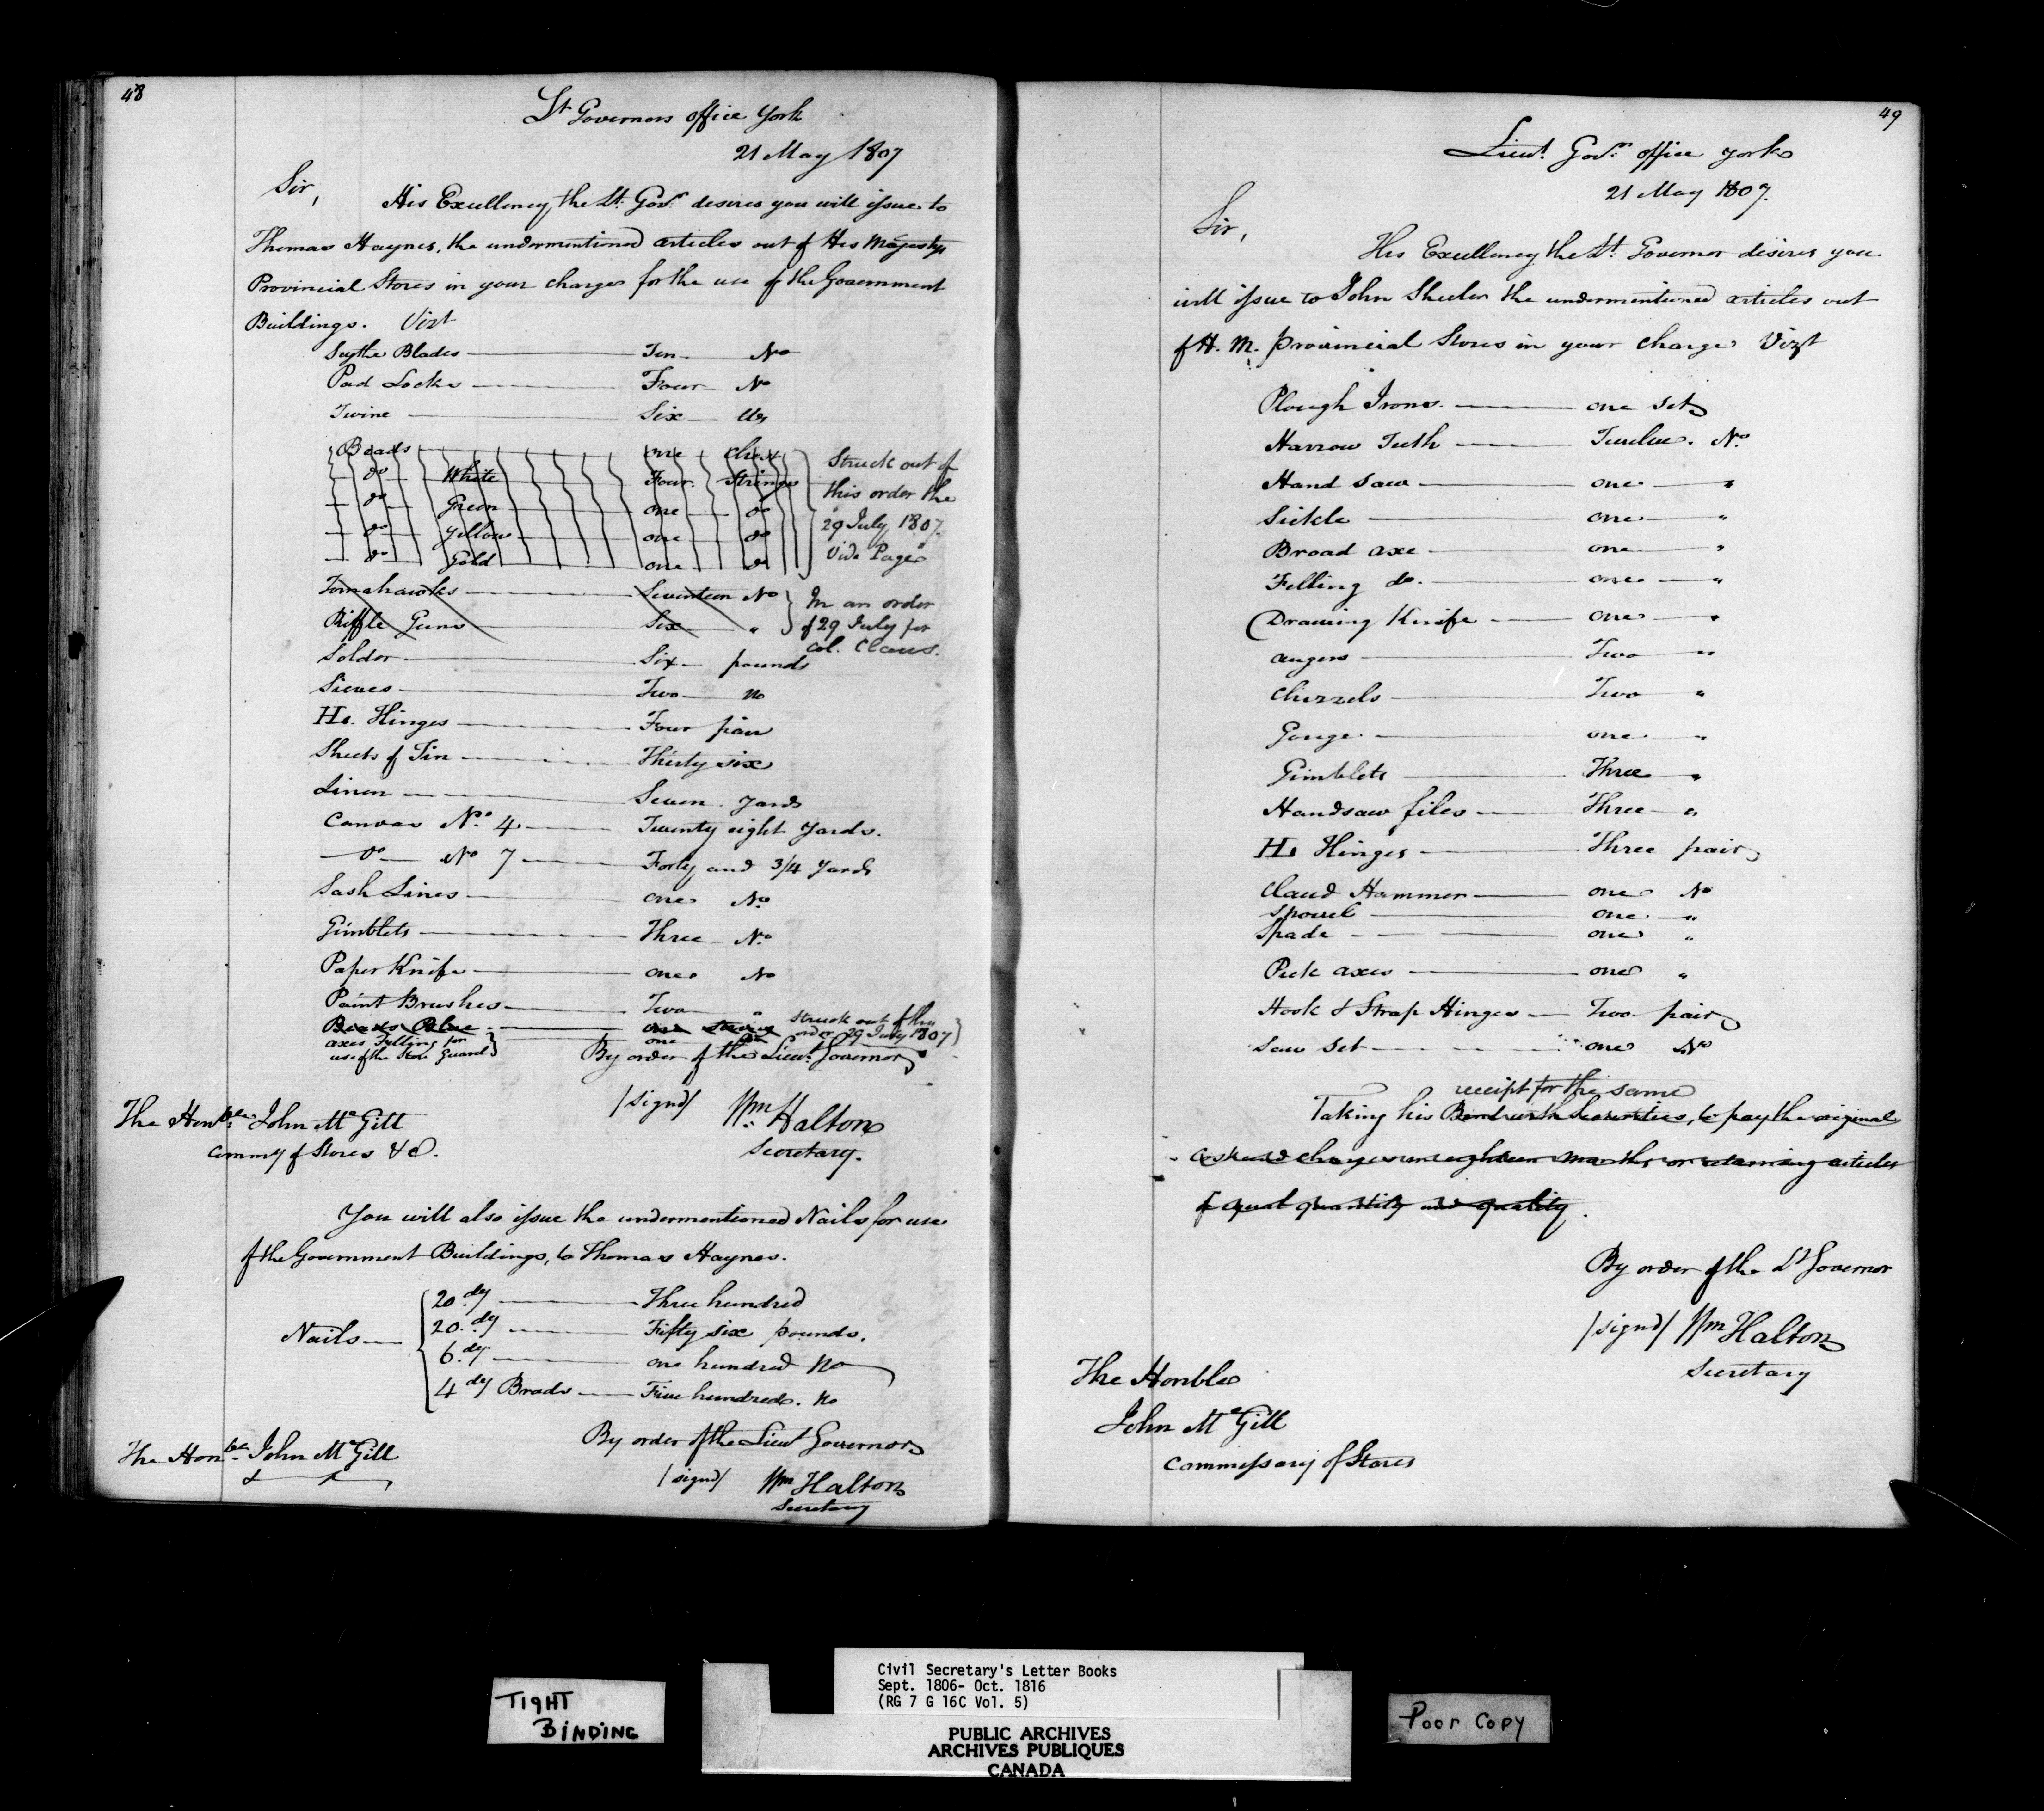 48
Lt Governors office York
21 May 1807
Sir,
His Excellency the Lt. Govr. desires you will issue to
Thomas Haynes, the undermentioned articles out of His Majestys
Provincial Stores in your charge for the use of the Government
Buildings. Vizt
Scythe Blades — Ten — No
Pad Locks — Four — No
Twine — Six — lbs
Beads — one chest
do White — Four Strings
do Green — one — do
do Yellow — one — do
do Gold — one — do
Struck out of
this order the
29 July 1807.
Vide Page
Tomahawks — Seventeen No
Riffle Guns — Six "
In an order
of 29 July for
Col. Claus.
Soldor — Six — pounds
Sieves — Two — no
HL Hinges — Four pair
Sheets of Tin — Thirty six
Linen — Seven Yards
Canvas No. 4 — Twenty eight Yards.
do No 7 — Forty and 3/4 Yards
Sash Lines — one No.
Gimblets — Three No.
Paper Knife — one No
Paint Brushes — Two "
Beads Blue — one string
Struck out of this
order 29 July 1807
axes Felling for
use of the Store Guard — one
By order of the Lieut. Governor
/signd/ Wm. Halton
Secretary.
The Honble. John McGill
Commy of Stores &c.
You will also issue the undermentioned Nails for use
of the Government Buildings, to Thomas Haynes.
Nails —
20.dy — Three hundred
20.dy — Fifty six pounds.
6.dy — one hundred No
4 dy Brads — Five hundred. No
By order of the Lieut Governor
/signd/ Wm Halton
Secretary
The Honble. John McGill
49
Lieut. Govr. office York
21 May 1807.
Sir,
His Excellency the Lt. Governor desires you
will issue to John Sheeler the undermentioned articles out
of H. M. provincial Stores in your charge Vizt
Plough Irons. — one set
Harrow Teeth — Twelve. No.
Hand Saw — one — "
Sickle — one — "
Broad axe — one — "
Felling do. — one — "
Drawing Knife — one — "
augers — Two "
Chizzels — Two "
Gouge. — one "
Gimblets — Three "
Handsaw files — Three "
HL Hinges — Three pair
Claud Hammer — one No
Spovel — one "
Spade — one "
Pick axes — one "
Hook & Strap Hinges — Two pair
Saw Set — one No
receipt for the same
Taking his Bond with Securities, to pay the original
cost and charges in eighteen months or returning articles
of equal quantity and quality.
By order of the Lt Governor
/signd/ Wm Halton
Secretary
The Honble
John McGill
Commissary of Stores
TIGHT
BINDING
Civil Secretary's Letter Books
Sept. 1806- Oct. 1816
(RG 7 G 16C Vol. 5)
PUBLIC ARCHIVES
ARCHIVES PUBLIQUES
CANADA
Poor Copy